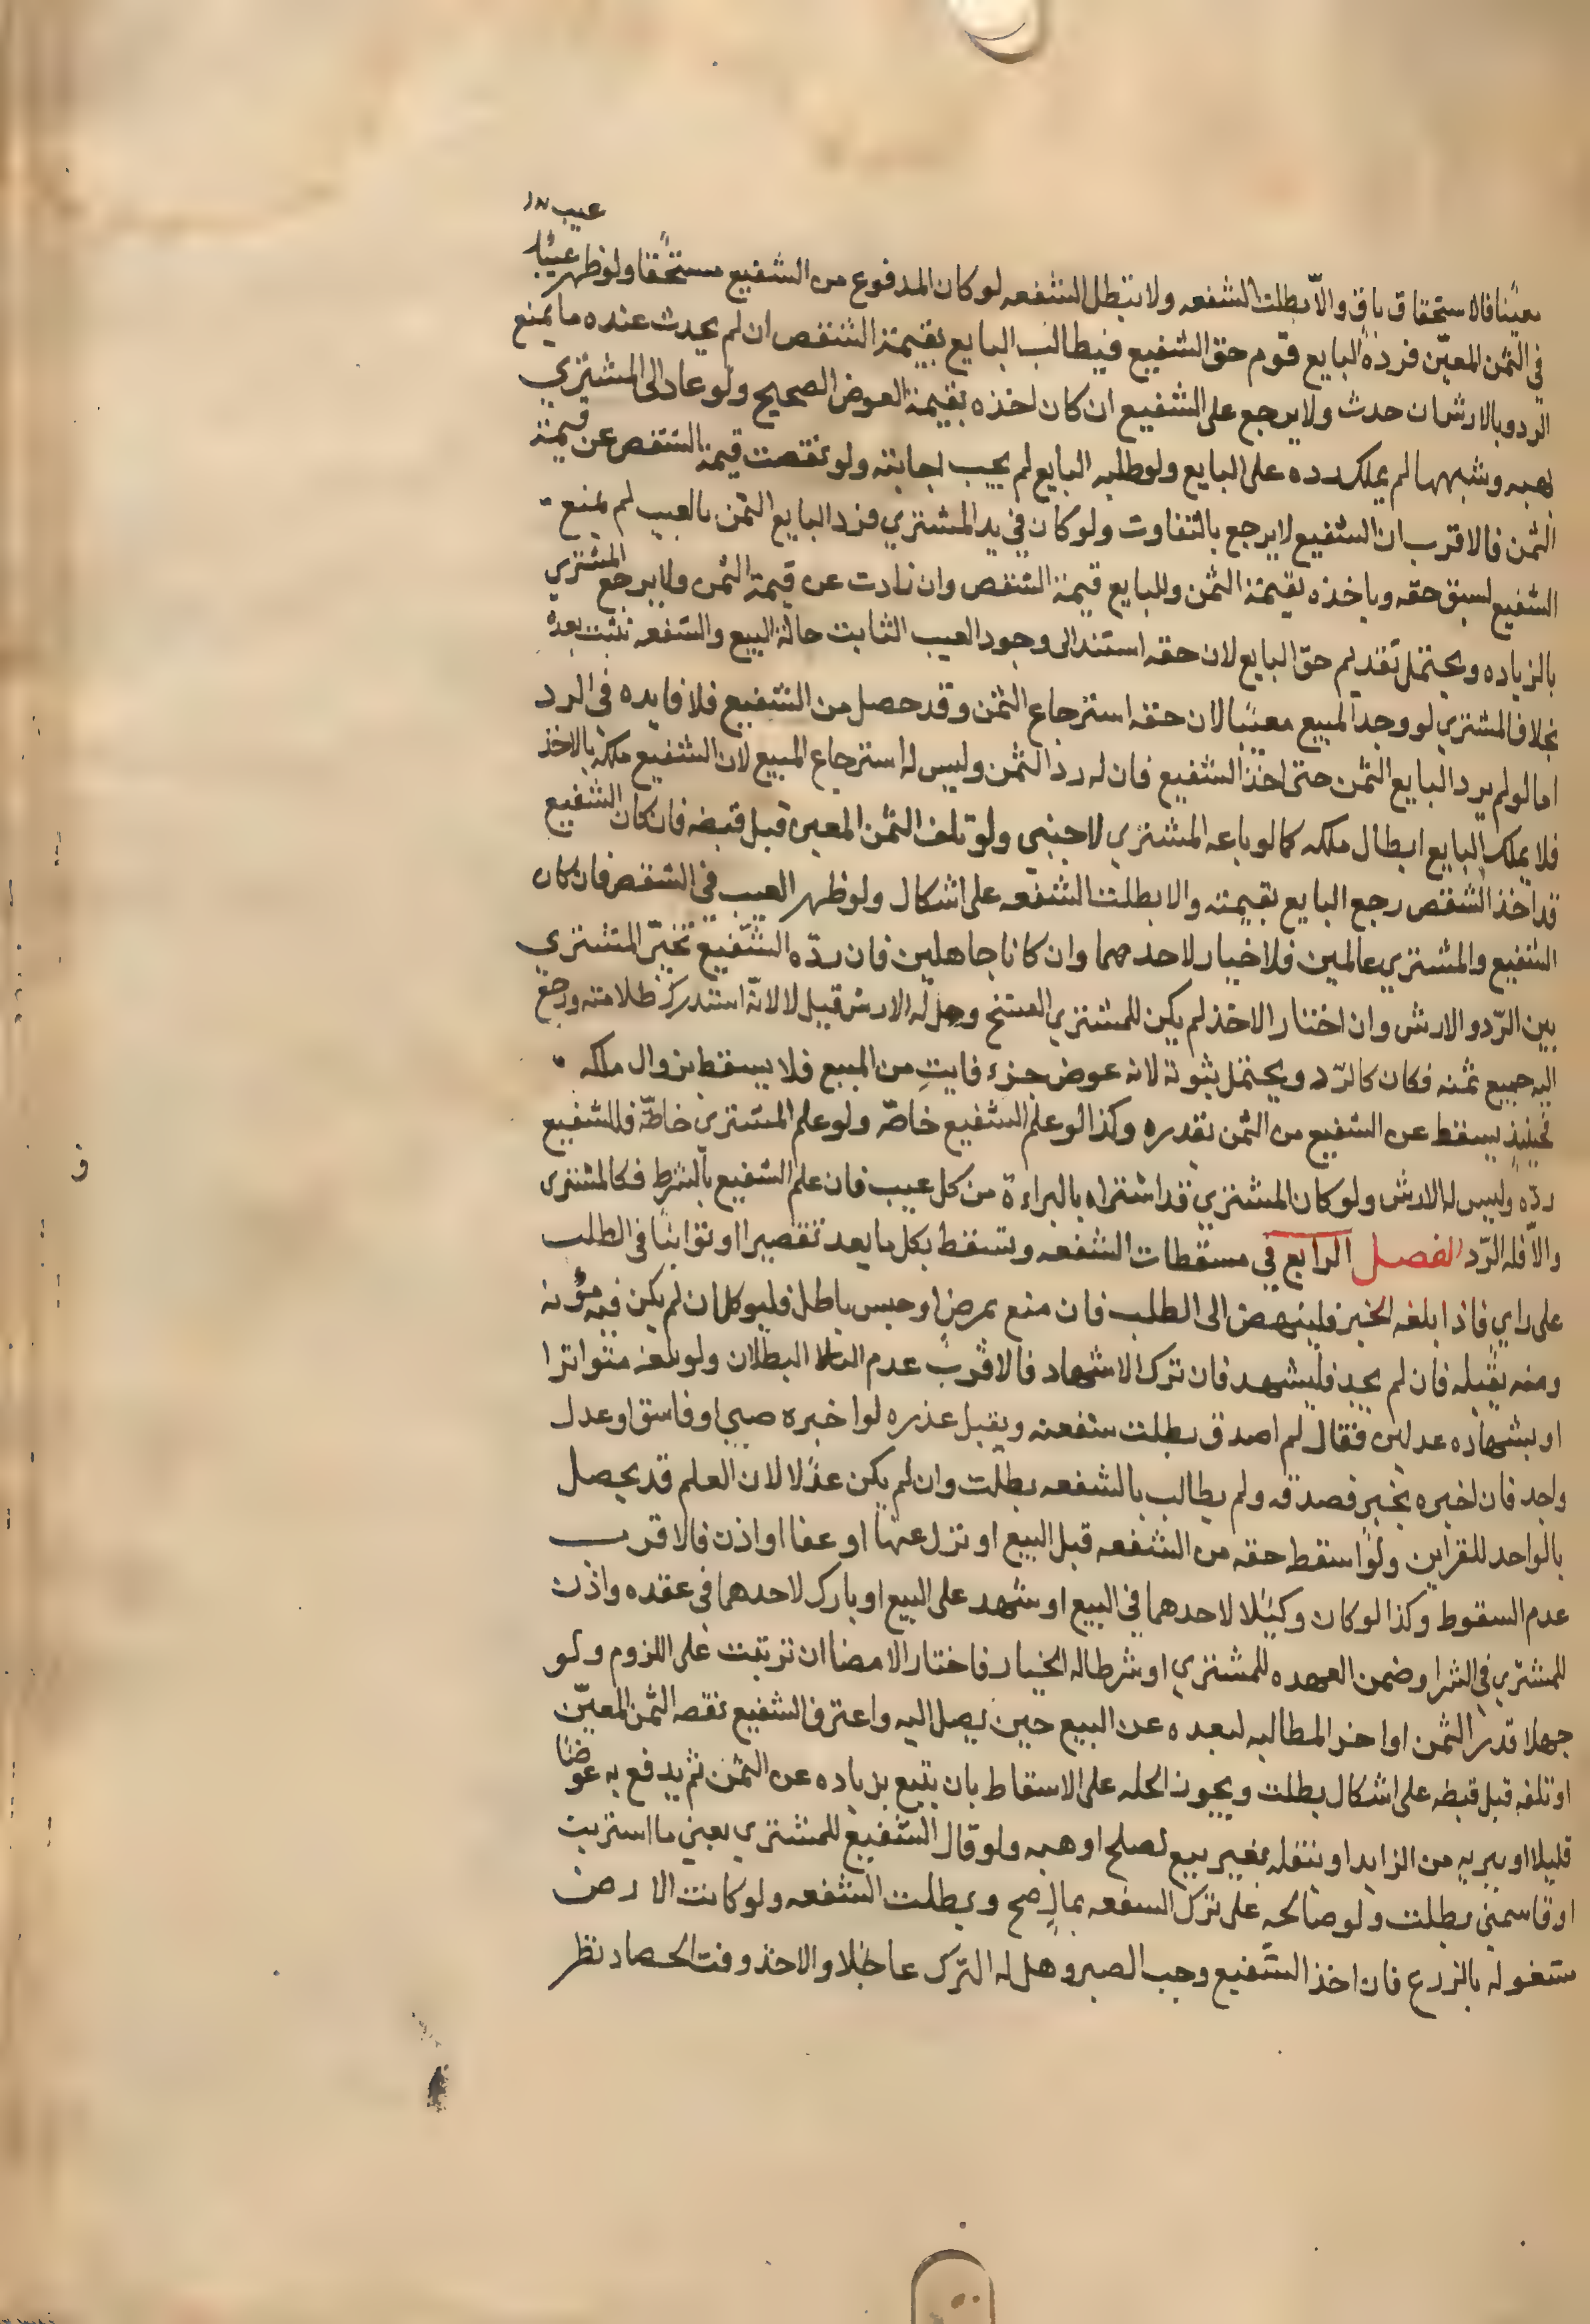 عيب
معينا فالاستحقاق باق والّا بطلت الشفعه ولا تبطل الشفعه لو كان المدفوع من الشفيع مستحقا ولو ظهر
في الثمن المعيّن فرده البايع قوم حق الشفيع فيطالب البايع بقيمة الشقص ان لم يحدث عنده ما يمنع
الرد وبالارش ان حدث ولا يرجع على الشفيع ان كان اخذه بقيمة العوض الصحيح ولو عاد الى المشتري
بهبه وشبهها لم يملك رده على البايع ولو طلبه البايع لم يجب اجابته ولو نقصت قيمة الشقص عن قيمة
الثمن فالاقرب ان الشفيع لا يرجع بالتفاوت ولو كان في يد المشتري فرد البايع الثمن بالعيب لم يمنع
الشفيع لسبق حقه وياخذه بقيمة الثمن وللبايع قيمة الشقص وان زادت عن قيمة الثمن ولا يرجع المشتري
بالزياده ويحتمل تقديم حق البايع لان حقه استند الى وجود العيب الثابت حالة البيع والشفعه تثبت بعده
بخلاف المشتري لو وجد المبيع معيبا لان حقه استرجاع الثمن وقد حصل من الشفيع فلا فايده في الرد
اما لو لم يرد البايع الثمن حتى اخذ الشفيع فان له رد الثمن وليس له استرجاع المبيع لان الشفيع ملكه بالاخذ
فلا يملك البايع ابطال ملكه كما لو باعه المشتري لاجنبي ولو تلف الثمن المعين قبل قبضه فان كان الشفيع
قد اخذ الشقص رجع البايع بقيمته والا بطلت الشفعه على اشكال ولو ظهر العيب في الشقص فان كان
الشفيع والمشتري عالمين فلا خيار لاحدهما وان كانا جاهلين فان ردّه الشفيع تخيّر المشتري
بين الرّد والارش وان اختار الاخذ لم يكن للمشتري الفسخ وهل له الارش قيل لا لانّه استدرك ظلامته ورجع
اليه جميع ثمنه فكان كالرّد ويحتمل ثبوته لانه عوض جزء فايتٍ من المبيع فلا يسقط بزوال ملكه
فحينيذٍ يسقط عن الشفيع من الثمن بقدره وكذا لو علم الشفيع خاصّه ولو علم المشتري خاصّه فللشفيع
ردّه وليس له الارش ولو كان المشتري قد اشتراه بالبراءة من كل عيب فان علم الشفيع بالشرط فكالمشتري
والّا فله الرّد الفصل الرابع في مسقطات الشفعه وتسقط بكل ما يعد تقصيرا او توانيًا في الطلب
على راي فاذا بلغه الخبر فلينهض الى الطلب فان منع بمرض او حبس باطل فليوكل ان لم يكن فيه مؤنه
ومنه ثقيله فان لم يجد فليشهد فان ترك الاشهاد فالاقرب عدم البطلان ولو بلغه متواترا
او بشهاده عدلين فقال لم اصدق بطلت شفعته ويقبل عذره لو اخبره صبي او فاسق او عدل
واحد فان اخبره مخبر فصدقه ولم يطالب بالشفعه بطلت وان لم يكن عدلا لان العلم قد يحصل
بالواحد للقراين ولو اسقط حقه من الشفعه قبل البيع او نزل عنها او عفا او اذن فالاقرب
عدم السقوط وكذا لو كان وكيلا لاحدهما في البيع او شهد على البيع او بارك لاحدهما في عقده واذن
للمشتري في الشرا وضمن العهده للمشتري او شرطا له الخيار فاختار الامضا ان ترتبت على اللزوم ولو
جهلا قدر الثمن او اخر المطالبه لبعده عن البيع حين يصل اليه واعترف الشفيع بغصبه الثمن المعيّن
او تلفه قبل قبضه على اشكال بطلت ويجوز الحله على الاسقاط بان يبيع بزياده عن الثمن ثم يدفع به عوضًا
قليلا او يبريه من الزايد او ينقله بغير بيع لصلح او هبه ولو قال الشفيع للمشتري بعني ما اشتريت
او قاسمني بطلت ولو صالحه على ترك الشفعه بمالٍ صح وبطلت الشفعه ولو كانت الارض
مشغوله بالزرع فان اخذ الشفيع وجب الصبر وهل له التّرك عاجلا والاخذ وقت الحصاد نظر